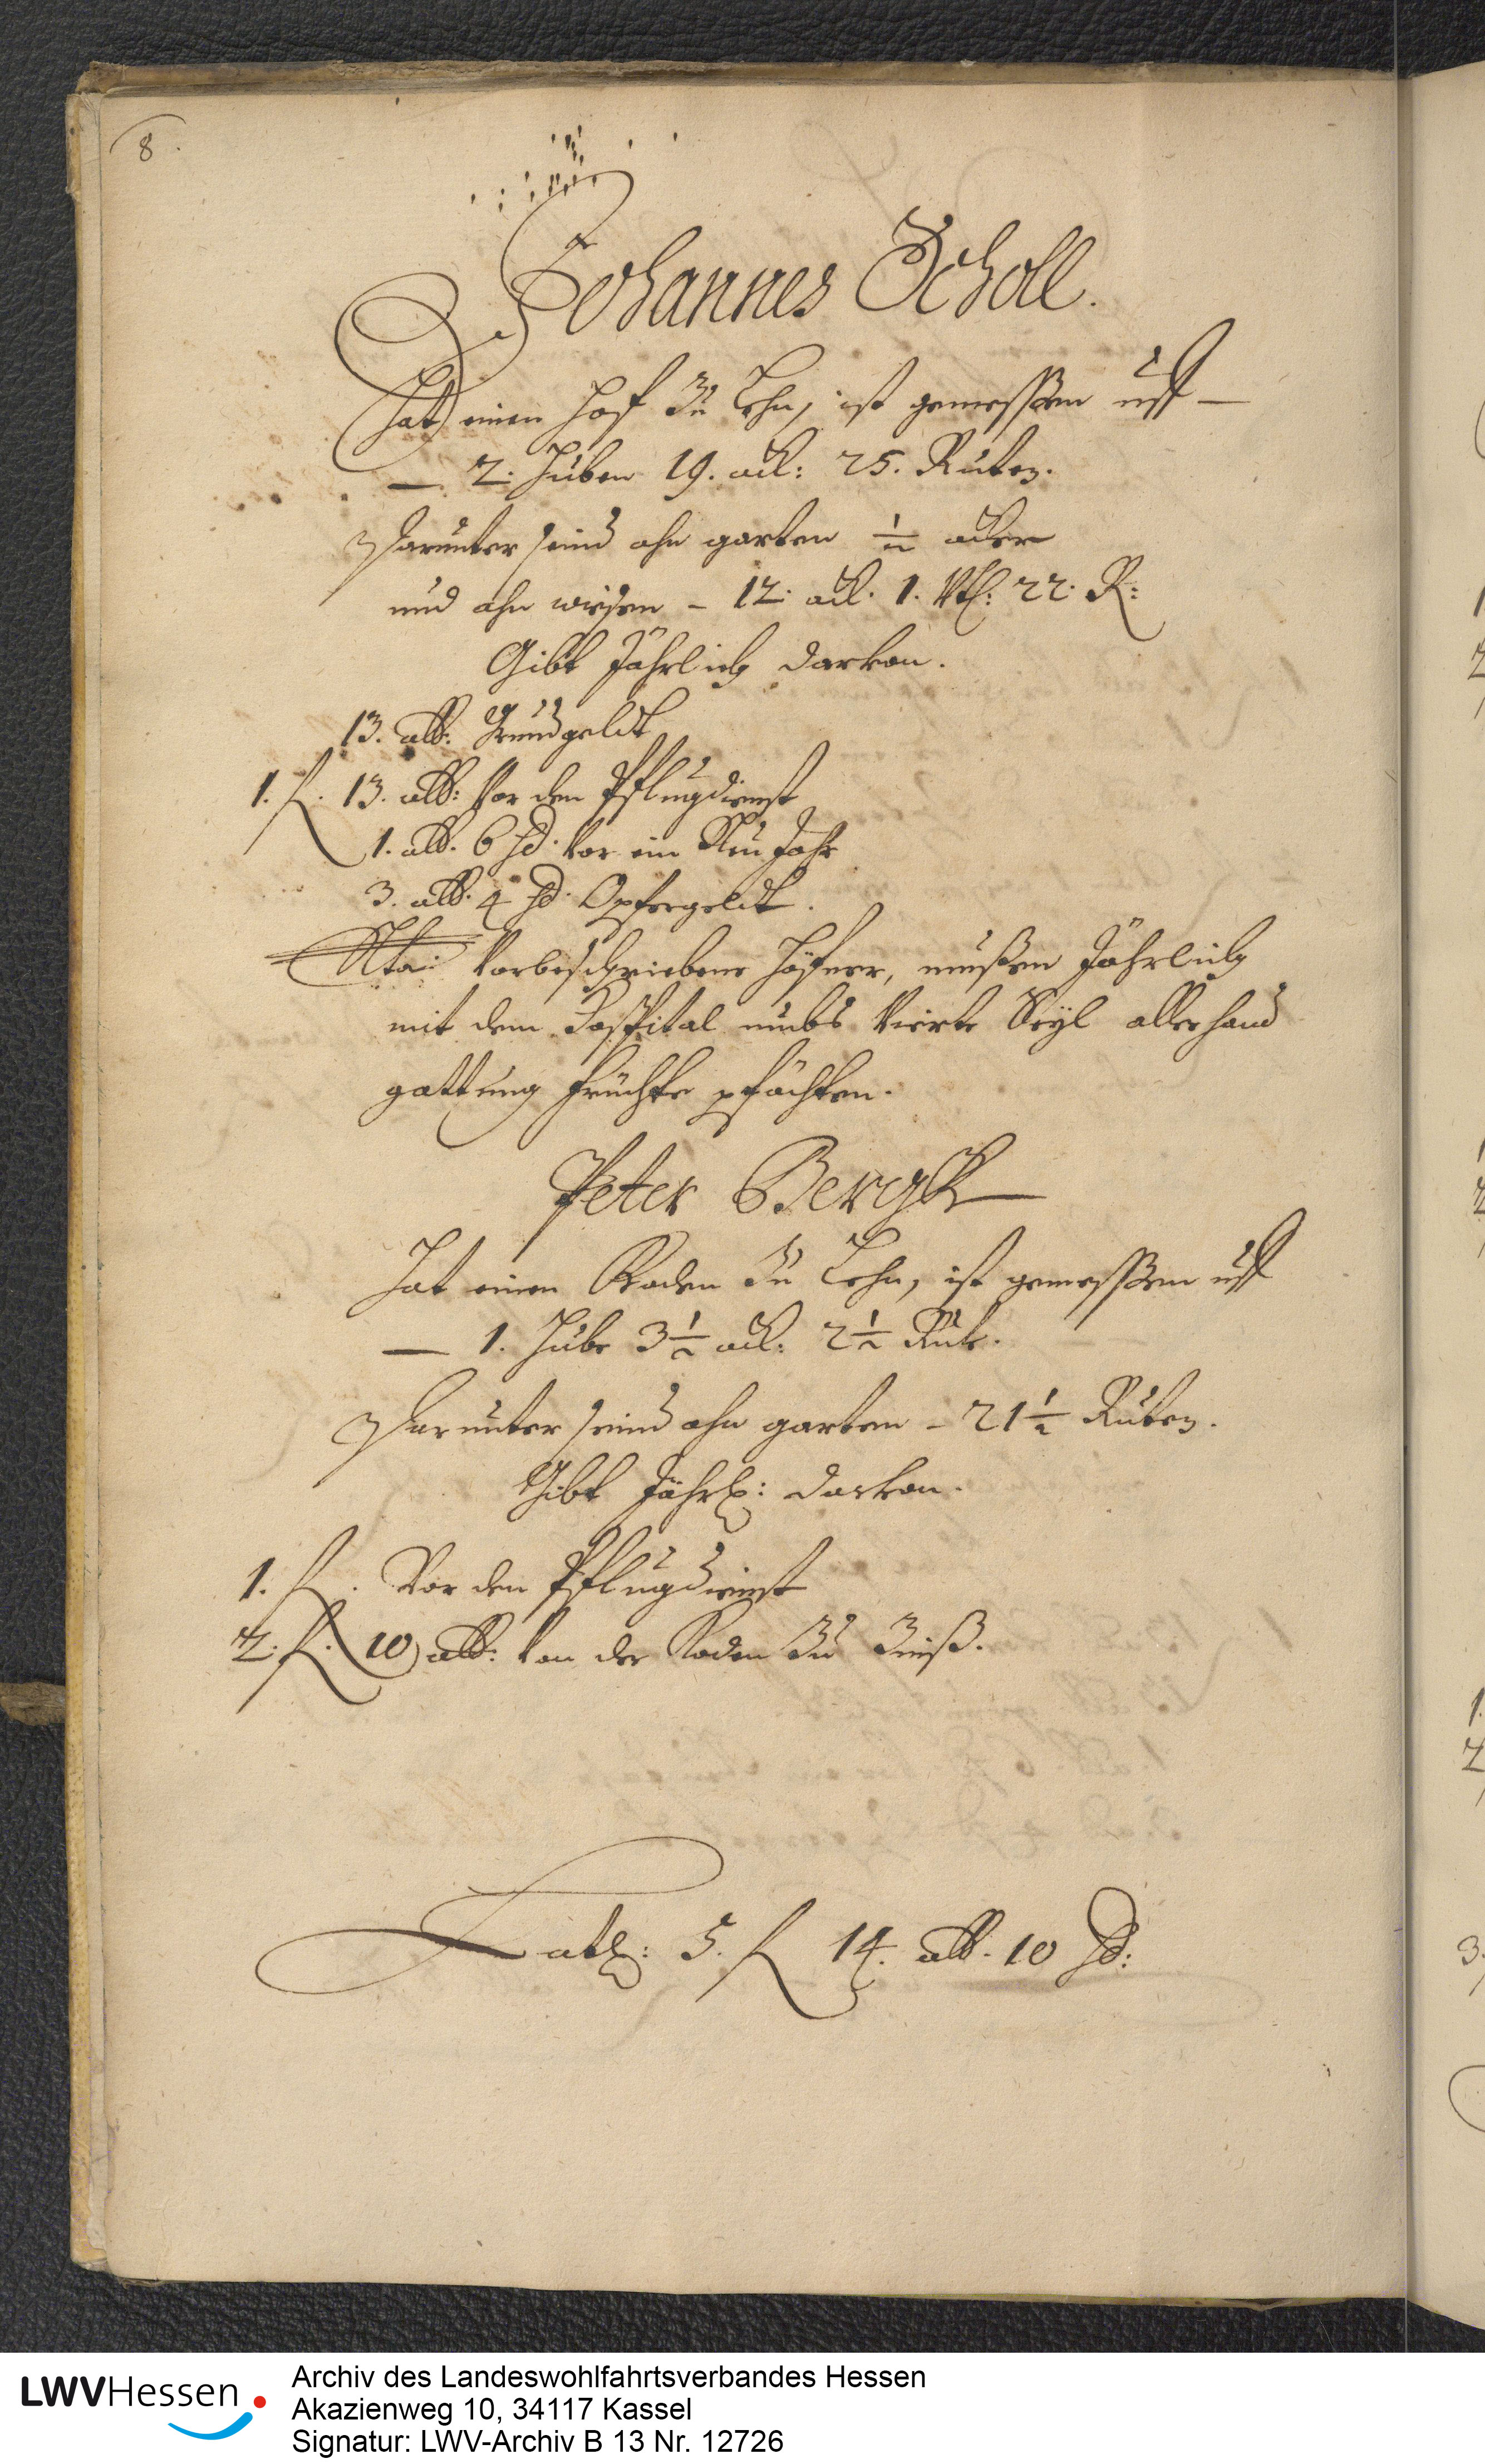 8.
Johannes Scholl.
Hat einen Hof zu Lehn, ist gemessen uff —
— 2. Huben 19. ack: 25. Ruten.
Darunter seind ahn garten ½ acker
und ahn wiesen – 12. ack. 1. Vtl: 22. R:
Gibt Jährlich darvon.
13. alb: Grundgeldt
1. fl. 13. alb: Vor den Pflugdienst
1. alb. 6 hl. Vor ein Neu Jahr
3. alb. 4 hl. Opfergeldt.
Nta: Vorbeschriebene Höfner, mußen Jährlich
mit dem Hospital umbs Vierte Seyl allerhand
gattung früchte pfächten.
Peter Bergk
Hat einen Roden zu Lehn, ist gemessen uff
— 1. Hube 3½ ack: 2½ Rut.
Darunter seind ahn garten – 21½ Ruten.
Gibt Jährl: darvon.
1. fl. Vor den Pflugdienst
2. fl. 10 alb: Von der Roden zu Zinß.
Lats: 5. fl 14. alb. 10 hl:
LWVHessen
Archiv des Landeswohlfahrtsverbandes Hessen
Akazienweg 10, 34117 Kassel
Signatur: LWV-Archiv B 13 Nr. 12726